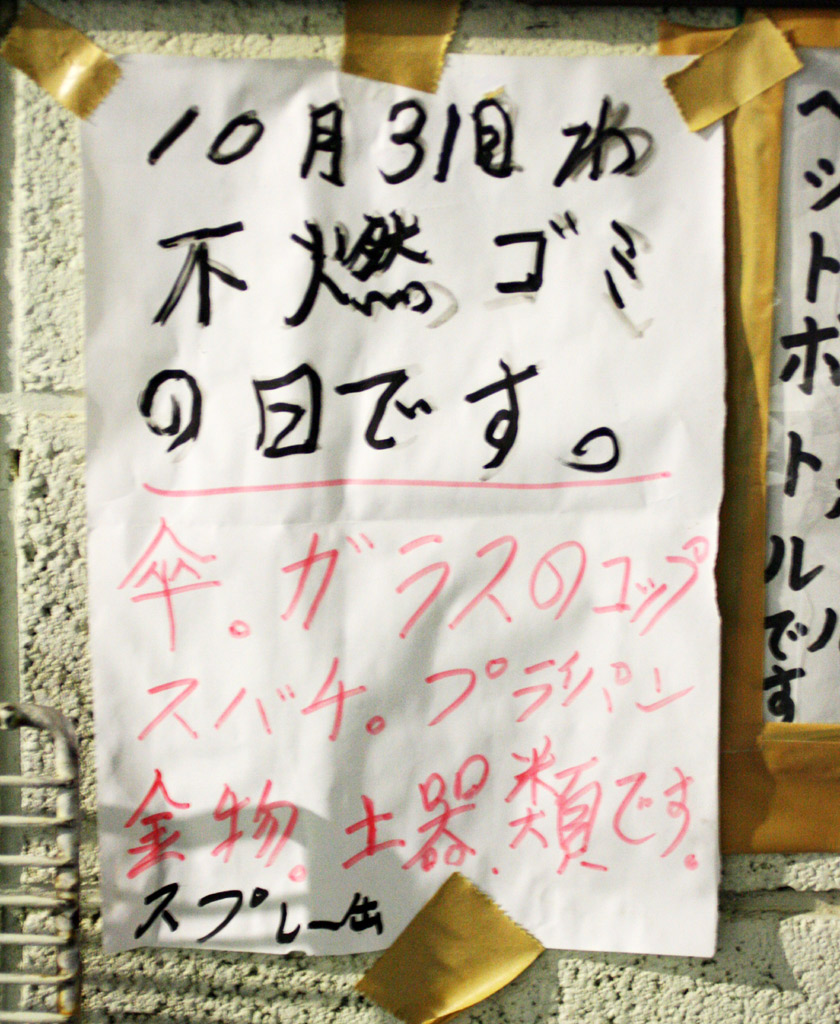 10月31日わ
不燃ゴミ
の日です。
傘。ガラスのコップ
スバチ。プライパン
金物。土器.類です.
スプレー缶
ペットボトルです